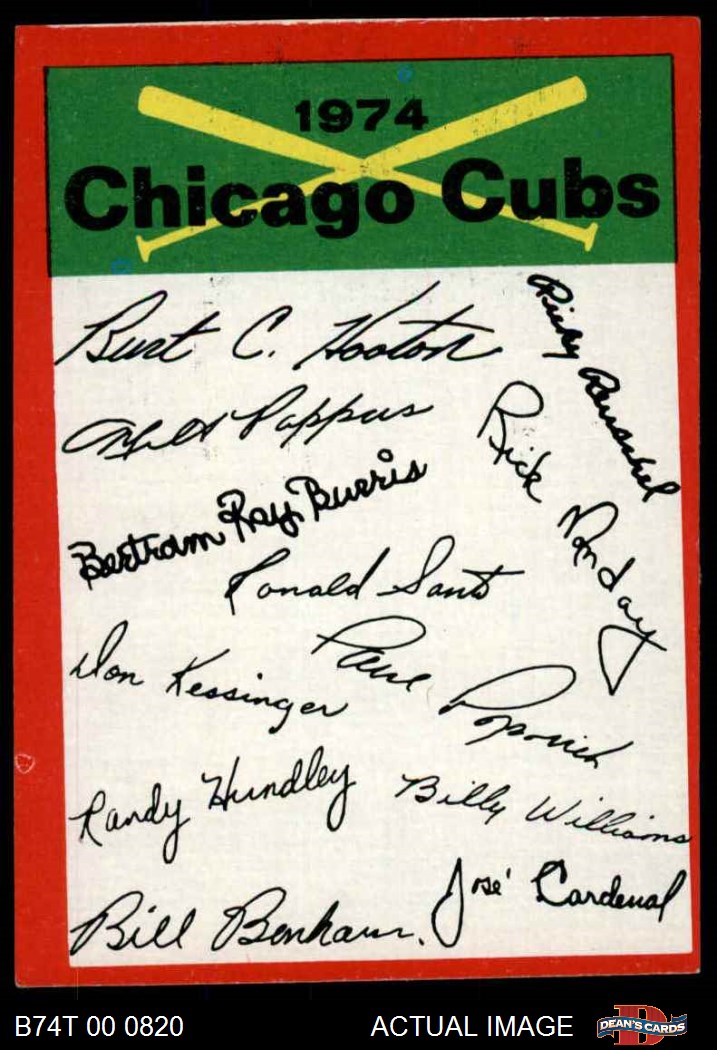 1974
Chicago Cubs
Burt C. Hooton
Ricky Reuschel
Milt Pappas
Rick Monday
Bertram Ray Burris
Ronald Santo
Don Kessinger
Paul Popovich
Randy Hundley
Billy Williams
José Cardenal
Bill Bonham.
B74T 00 0820
ACTUAL IMAGE
D
DEAN'S CARDS